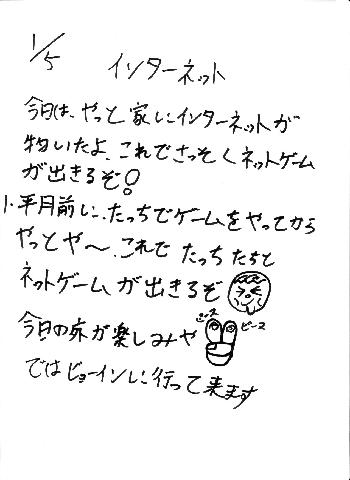 1/5
インターネット
今日は、やっと家にインターネットが
物いたよ、これでさっそくネットゲーム
が出きるぞ!
1.半月前に、たっちでゲームをやってから
やっとや〜、これで たっちたちと
ネットゲームが出きるぞ
ピース
ピース
今日の夜が楽しみや
ではビョーインに行って来ます